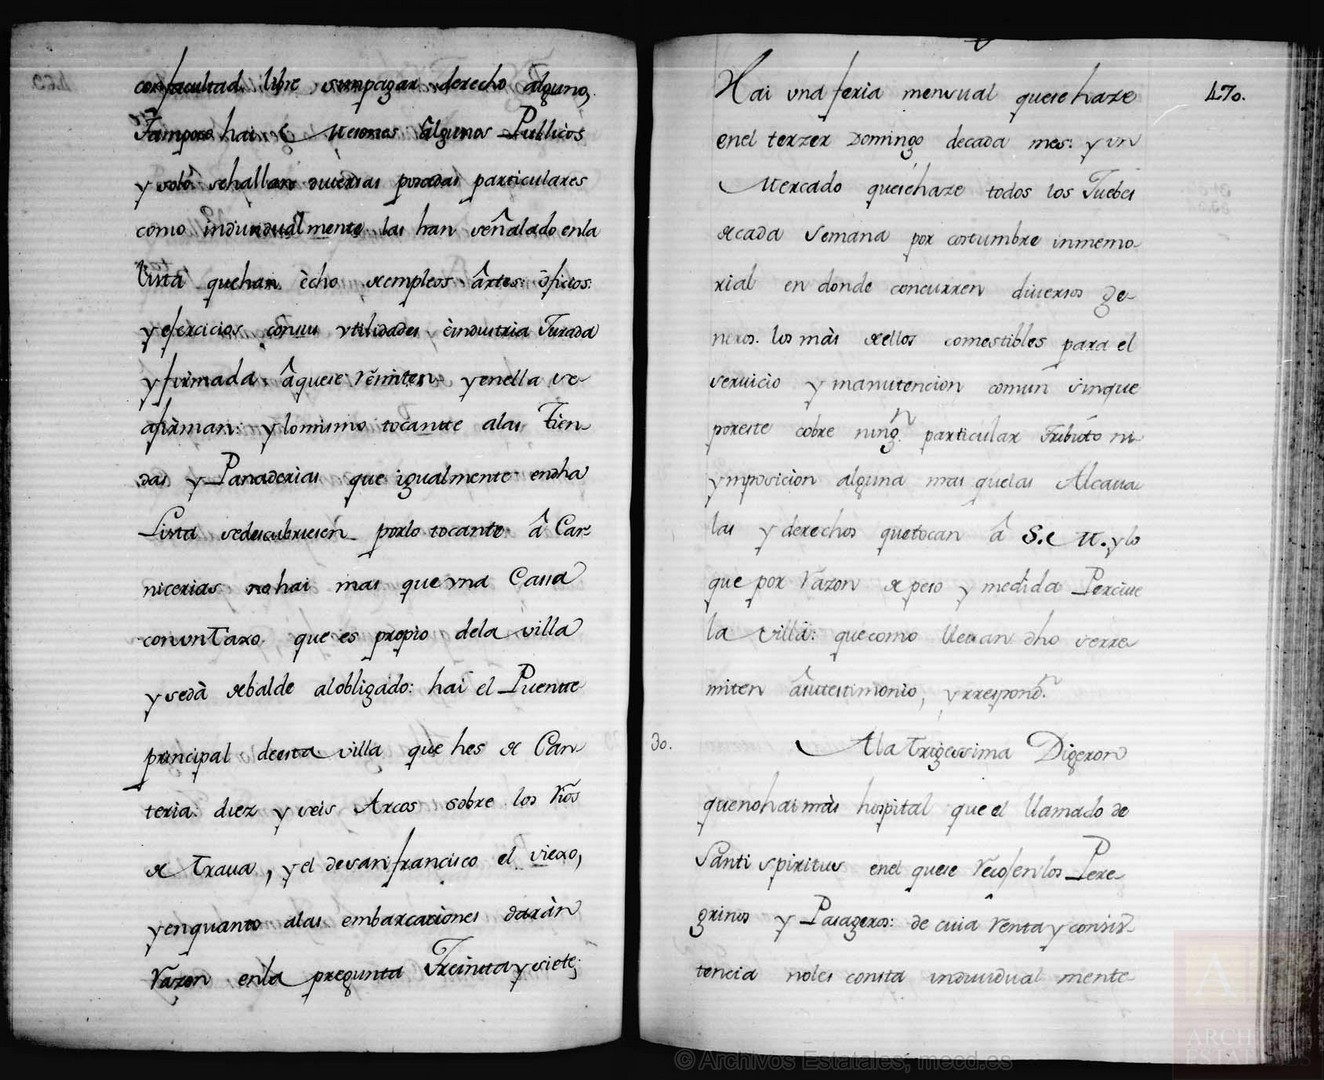 con facultad libre sin pagar derecho alguno,
Tampoco hai Mesones algunos Publicos
y solo se hallan diversas posadas particulares
como individualmente las han señalado en la
Lista que han echo de empleos, artes, oficios
y ejercicios, con sus vtilidades, è industria Jurada
y firmada, à que se rèmiten y en ella se
afirman: y lo mismo tocante a las Tien
das y Panaderias que igualmente en dha
Lista se descubriesen por lo tocante à Car
nicerias no hai mas que vna Cassa
con vn Taxo que es propio de la villa
y se dà de balde al obligado: hai el Puente
principal de esta villa que hes de Can
teria: diez y seis Arcos sobre los Rios
de Traua, y el de san francisco el viexo,
y en quanto a las embarcaciones daràn
Razon en la pregunta Treinta y siete;
470.
Hai vna feria mensual que se haze
en el terzer Domingo de cada mes: y vn
Mercado que se haze todos los Juebes
de cada Semana por costumbre inmemo-
rial en donde concurren diversos ge-
neros. los màs de ellos comestibles para el
seruicio y manutencion comun sin que
por este cobre ning.n particular tributo ni
ymposicion alguna mas que las Alcaua
las y derechos que tocan à S. M. y lo
que por Razon de peso y medida Perciue
la villa: que como lleuan dho se rre
miten à su testimonio, y rrespond.
30.
A la Trigessima Digeron
que no hai màs hospital que el llamado de
Santi spiritus en el que se Recojen los Pere
grinos y Pasageros: de cuia Renta y consis-
tencia no les consta indiuidual mente
© Archivos Estatales, mecd.es